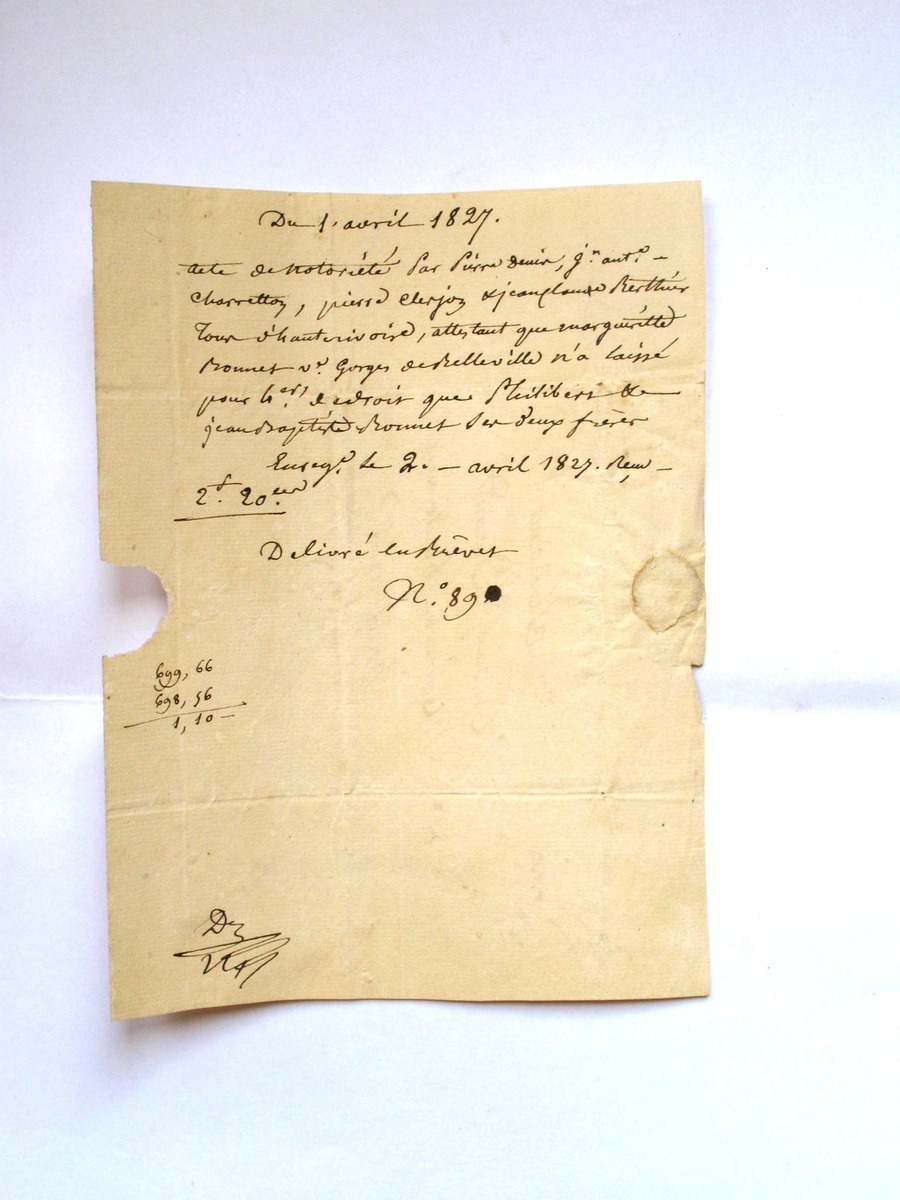 Du 1. avril 1827.
acte de notoriété par pierre Denis, j.n ant.e
Charretton, pierre Clerjon & jean claude Berthier
Tous d'hauterivoire, attestant que marguéritte
Bonnet v.e Gorges de Belleville n'a laissé
pour her.s de droit que Philibert &
jean Baptiste Bonnet ses deux frères
Enreg.é le 2. avril 1827. Reçu
2.f 20.ces
Délivré en Brévet
N.o 89
699, 66
698, 56
1, 10